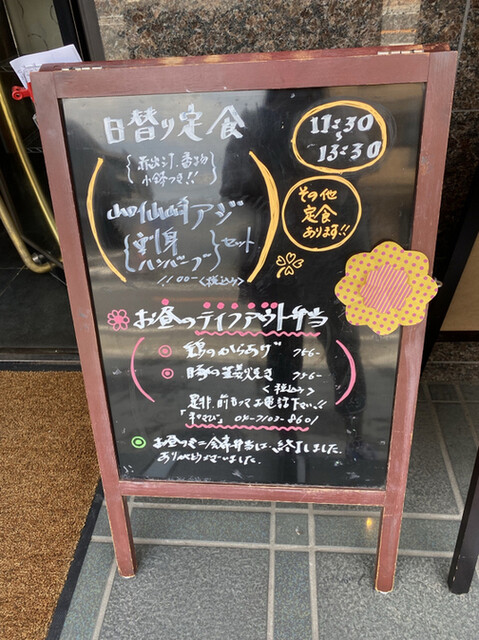 日替り定食
11:30
〜
13:30
{赤出汁、香物
小鉢つき!!}
その他
定食
あります!!
アジ
刺身
ハンバーグ
セット
1100-<税込み>
お昼のテイクアウト弁当
鶏のからあげ 756-
豚の生姜焼き 756-
<税込み>
是非、前もってお電話下さい!!
「わさび」 04-7103-8601
お昼のミニ会席弁当は、終了しました。
ありがとうございました。